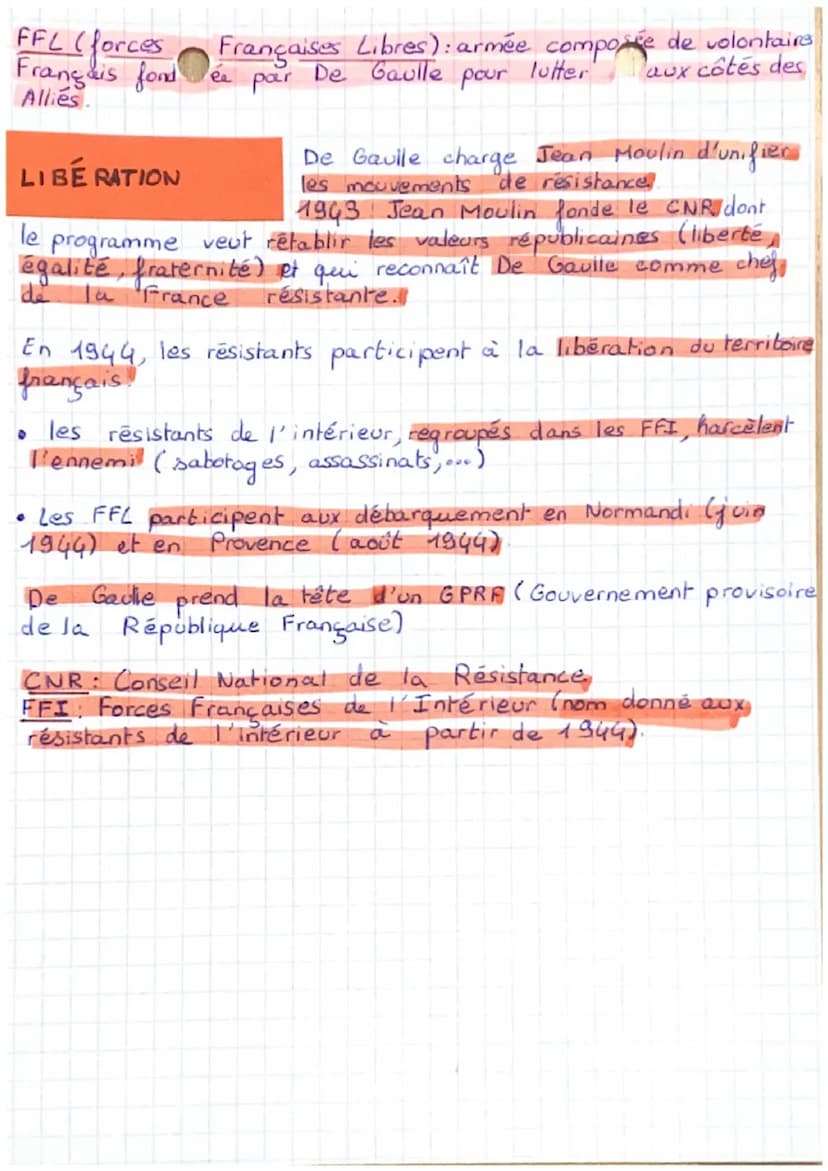 FFL (forces Françaises Libres) : armée composée de volontaires
Français fondée par De Gaulle pour lutter aux côtés des
Alliés.
LIBÉRATION
De Gaulle charge Jean Moulin d'unifier
les mouvements de résistance.
1943 : Jean Moulin fonde le CNR, dont
le programme veut rétablir les valeurs républicaines (liberté,
égalité, fraternité) et qui reconnaît De Gaulle comme chef
de la France résistante.
En 1944, les résistants participent à la libération du territoire
français.
• les résistants de l'intérieur, regroupés dans les FFI, harcèlent
l'ennemi (sabotages, assassinats,...)
• Les FFL participent aux débarquement en Normandi (juin
1944) et en Provence (août 1944).
De Gaulle prend la tête d'un GPRF (Gouvernement provisoire
de la République Française)
CNR : Conseil National de la Résistance
FFI : Forces Françaises de l'Intérieur (nom donné aux
résistants de l'intérieur à partir de 1944).